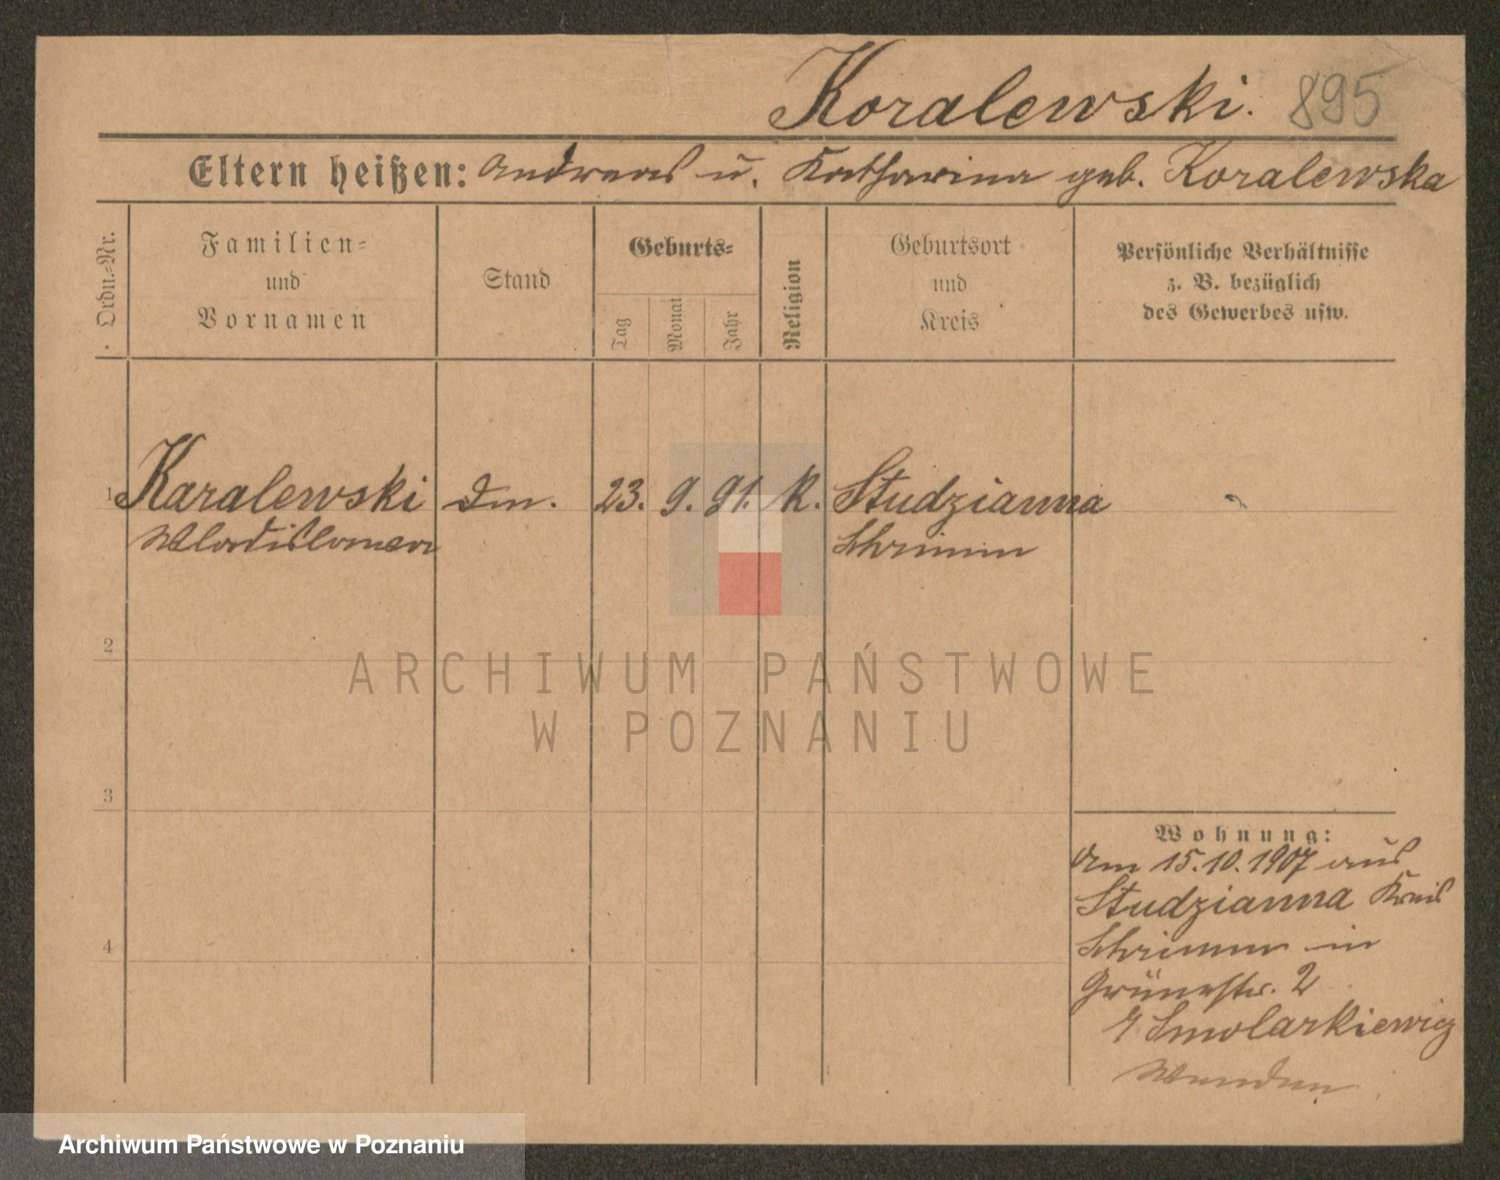 Koralewski. 895
Eltern heißen: Andreas u. Katharina geb. Koralewska
Ordn.-Nr.
Familien-
und
Vornamen
Stand
Geburts-
Tag
Monat
Jahr
Religion
Geburtsort
und
Kreis
Persönliche Verhältnisse
z. B. bezüglich
des Gewerbes usw.
1 Karalewski 23. 9. 91. K. Studzianna
Wladislawa Schrimm
2
ARCHIWUM PAŃSTWOWE
W POZNANIU
3
Wohnung:
Am 15.10.1907 aus
Studzianna Kreis
4
Schrimm in
Grünestr. 2
Smolarkiewicz
Archiwum Państwowe w Poznaniu